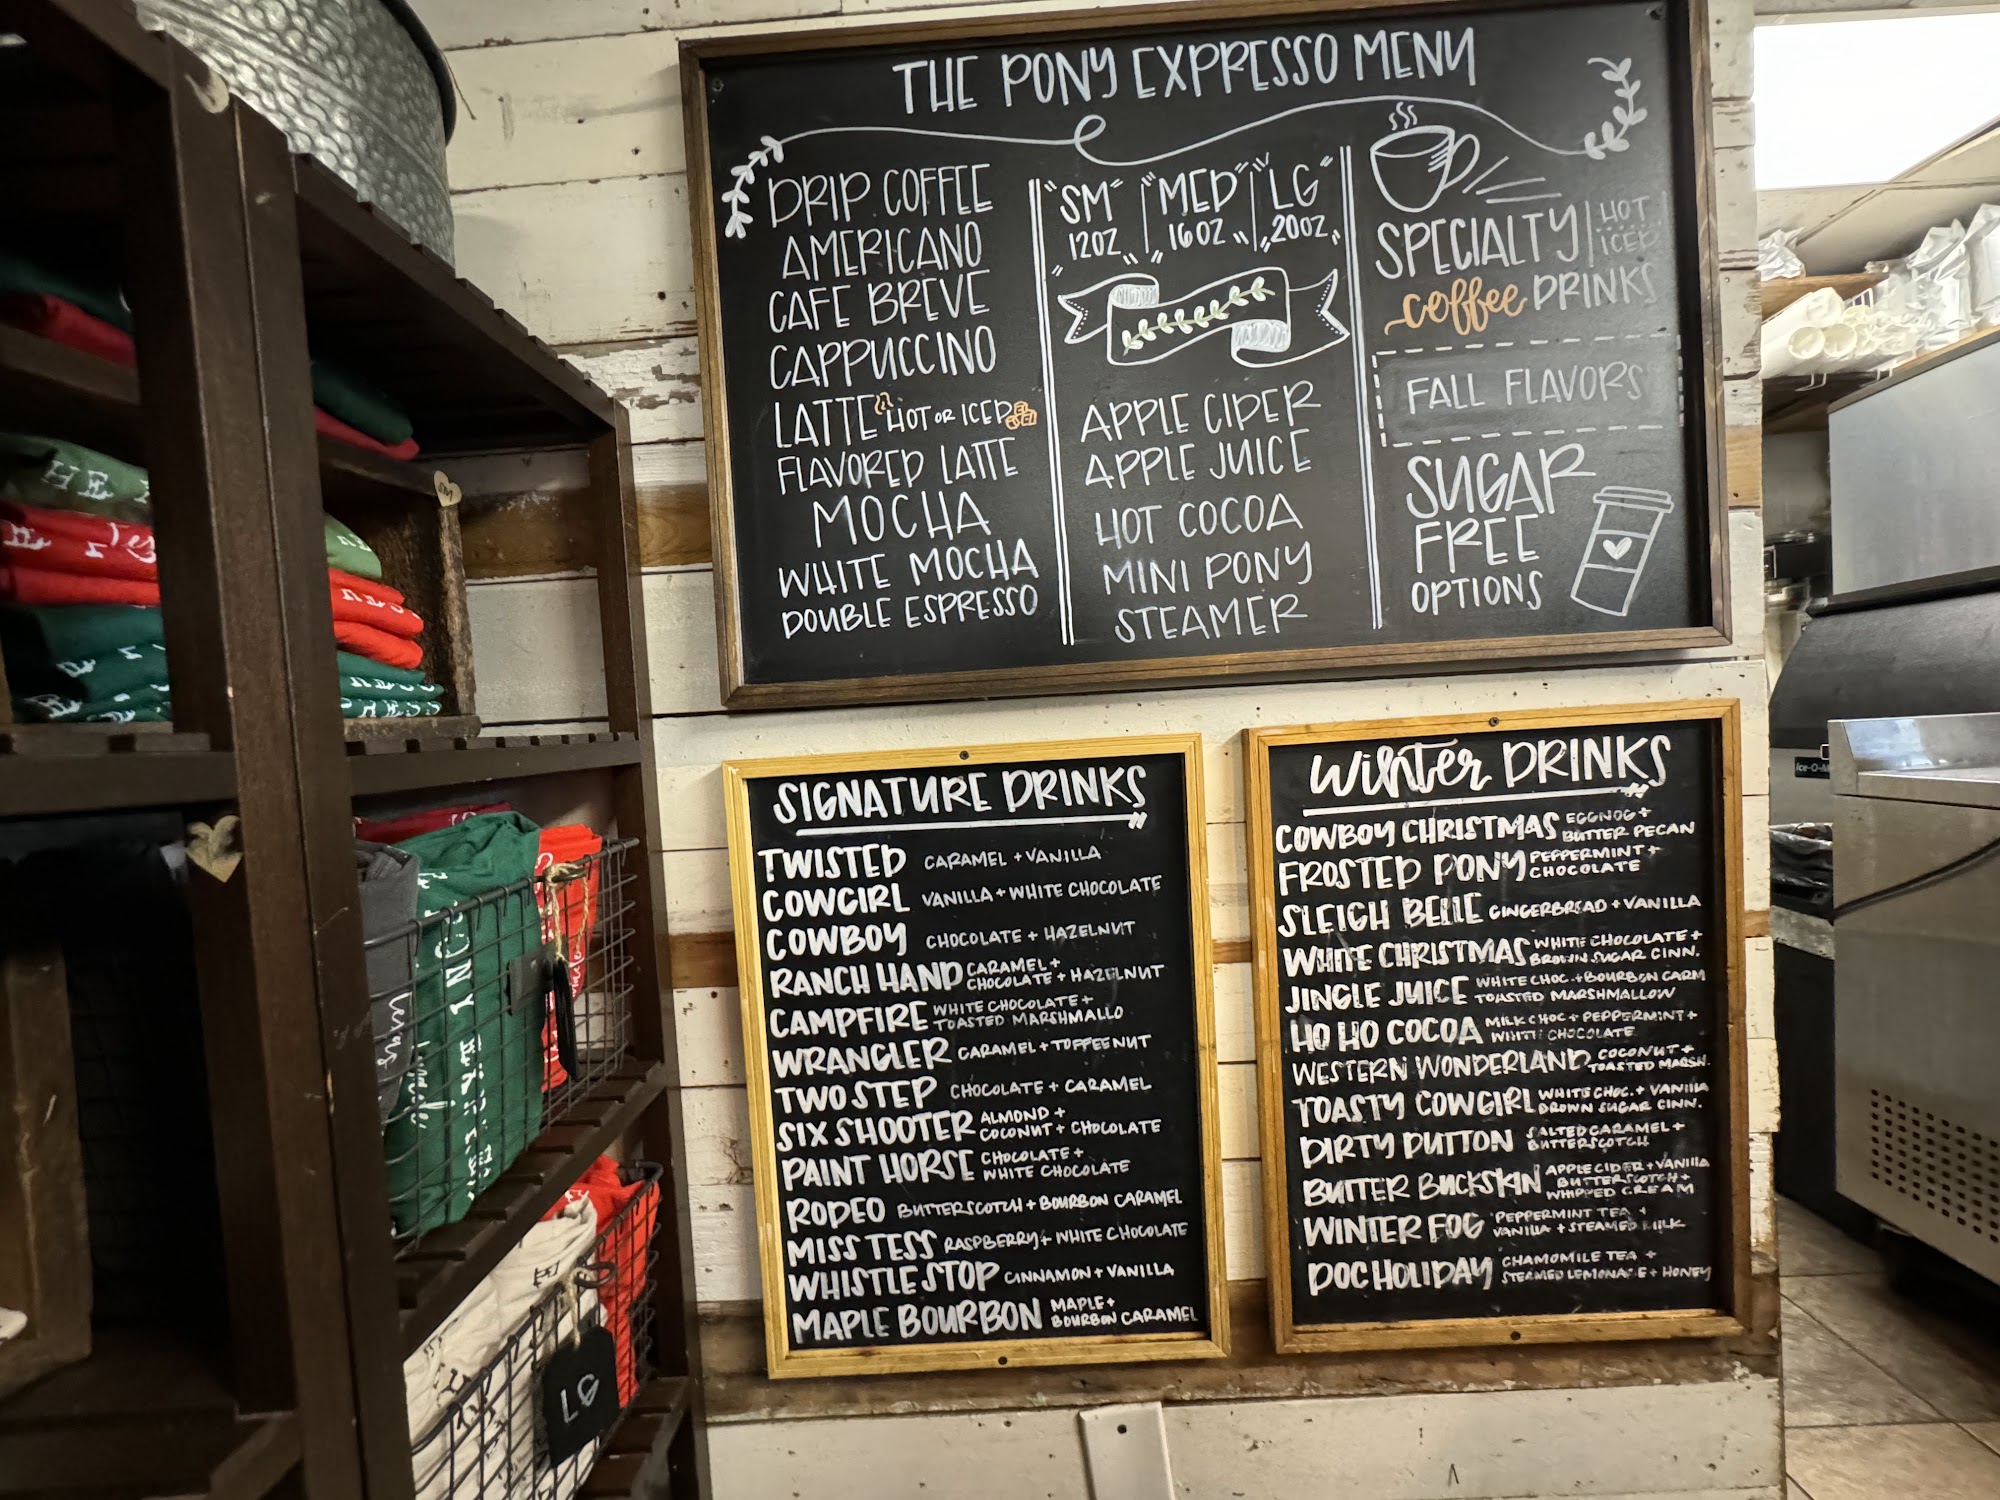 THE PONY EXPRESSO MENU
DRIP COFFEE
AMERICANO
CAFE BREVE
CAPPUCCINO
LATTE HOT OR ICED
FLAVORED LATTE
MOCHA
WHITE MOCHA
DOUBLE ESPRESSO
"SM" "MED" "LG"
12OZ 16OZ 20OZ
APPLE CIDER
APPLE JUICE
HOT COCOA
MINI PONY
STEAMER
SPECIALTY HOT
ICED
coffee DRINKS
FALL FLAVORS
SUGAR
FREE
OPTIONS
SIGNATURE DRINKS
TWISTED CARAMEL + VANILLA
COWGIRL VANILLA + WHITE CHOCOLATE
COWBOY CHOCOLATE + HAZELNUT
RANCH HAND CARAMEL +
CHOCOLATE + HAZELNUT
CAMPFIRE WHITE CHOCOLATE +
TOASTED MARSHMALLO
WRANGLER CARAMEL + TOFFEENUT
TWO STEP CHOCOLATE + CARAMEL
SIX SHOOTER ALMOND +
COCONUT + CHOCOLATE
PAINT HORSE CHOCOLATE +
WHITE CHOCOLATE
RODEO BUTTERSCOTCH + BOURBON CARAMEL
MISS TESS RASPBERRY + WHITE CHOCOLATE
WHISTLE STOP CINNAMON + VANILLA
MAPLE BOURBON MAPLE +
BOURBON CARAMEL
Winter DRINKS
COWBOY CHRISTMAS EGGNOG +
BUTTER PECAN
FROSTED PONY PEPPERMINT +
CHOCOLATE
SLEIGH BELLE GINGERBREAD + VANILLA
WHITE CHRISTMAS WHITE CHOCOLATE +
BROWN SUGAR CINN.
JINGLE JUICE WHITE CHOC. + BOURBON CARM
TOASTED MARSHMALLOW
HO HO COCOA MILK CHOC + PEPPERMINT +
WHITE CHOCOLATE
WESTERN WONDERLAND COCONUT +
TOASTED MARSH.
TOASTY COWGIRL WHITE CHOC. + VANILLA
BROWN SUGAR CINN.
DIRTY DUTTON SALTED CARAMEL +
BUTTERSCOTCH
BUTTER BUCKSKIN APPLE CIDER + VANILLA
BUTTERSCOTCH +
WHIPPED CREAM
WINTER FOG PEPPERMINT TEA +
VANILLA + STEAMED MILK
DOC HOLIDAY CHAMOMILE TEA +
STEAMED LEMONADE + HONEY
SM
LG